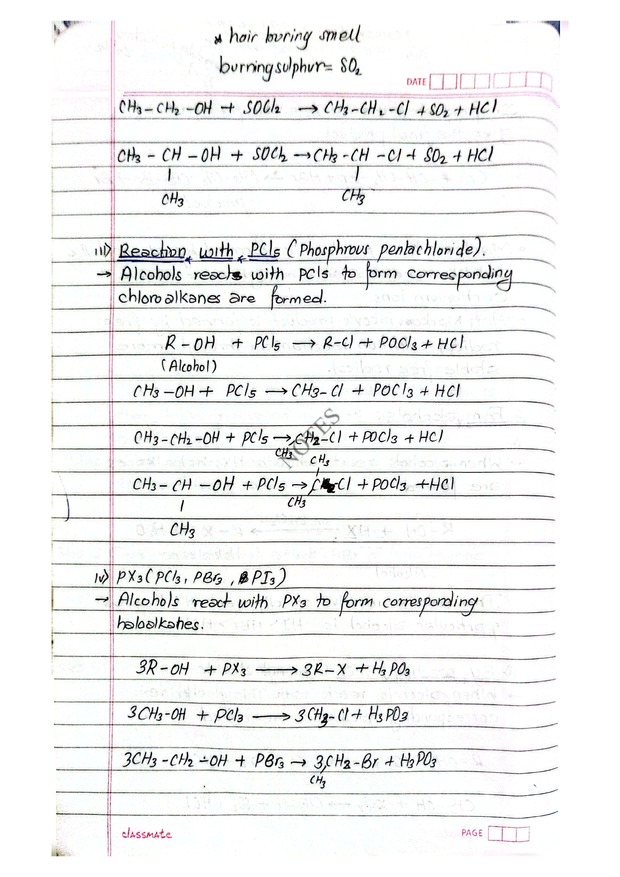 * hair buring smell
burning sulphur = SO2
DATE
CH3-CH2-OH + SOCl2 → CH3-CH2-Cl + SO2 + HCl
CH3 - CH - OH + SOCl2 → CH3 - CH - Cl + SO2 + HCl
| |
CH3 CH3
iii) Reaction with PCl5 (Phosphrous pentachloride).
→ Alcohols reacts with PCl5 to form corresponding
chloroalkanes are formed.
R - OH + PCl5 → R-Cl + POCl3 + HCl
(Alcohol)
CH3 -OH + PCl5 → CH3-Cl + POCl3 + HCl
CH3-CH2-OH + PCl5 → CH2-Cl + POCl3 + HCl
CH3
NOTES
CH3
CH3 - CH - OH + PCl5 → Cl + POCl3 + HCl
| CH3
CH3
iv) PX3 (PCl3, PBr3, PI3)
→ Alcohols react with PX3 to form corresponding
haloalkanes.
3R-OH + PX3 → 3R-X + H3PO3
3CH3-OH + PCl3 → 3CH3-Cl + H3PO3
3CH3-CH2-OH + PBr3 → 3CH2-Br + H3PO3
CH3
classmate
PAGE